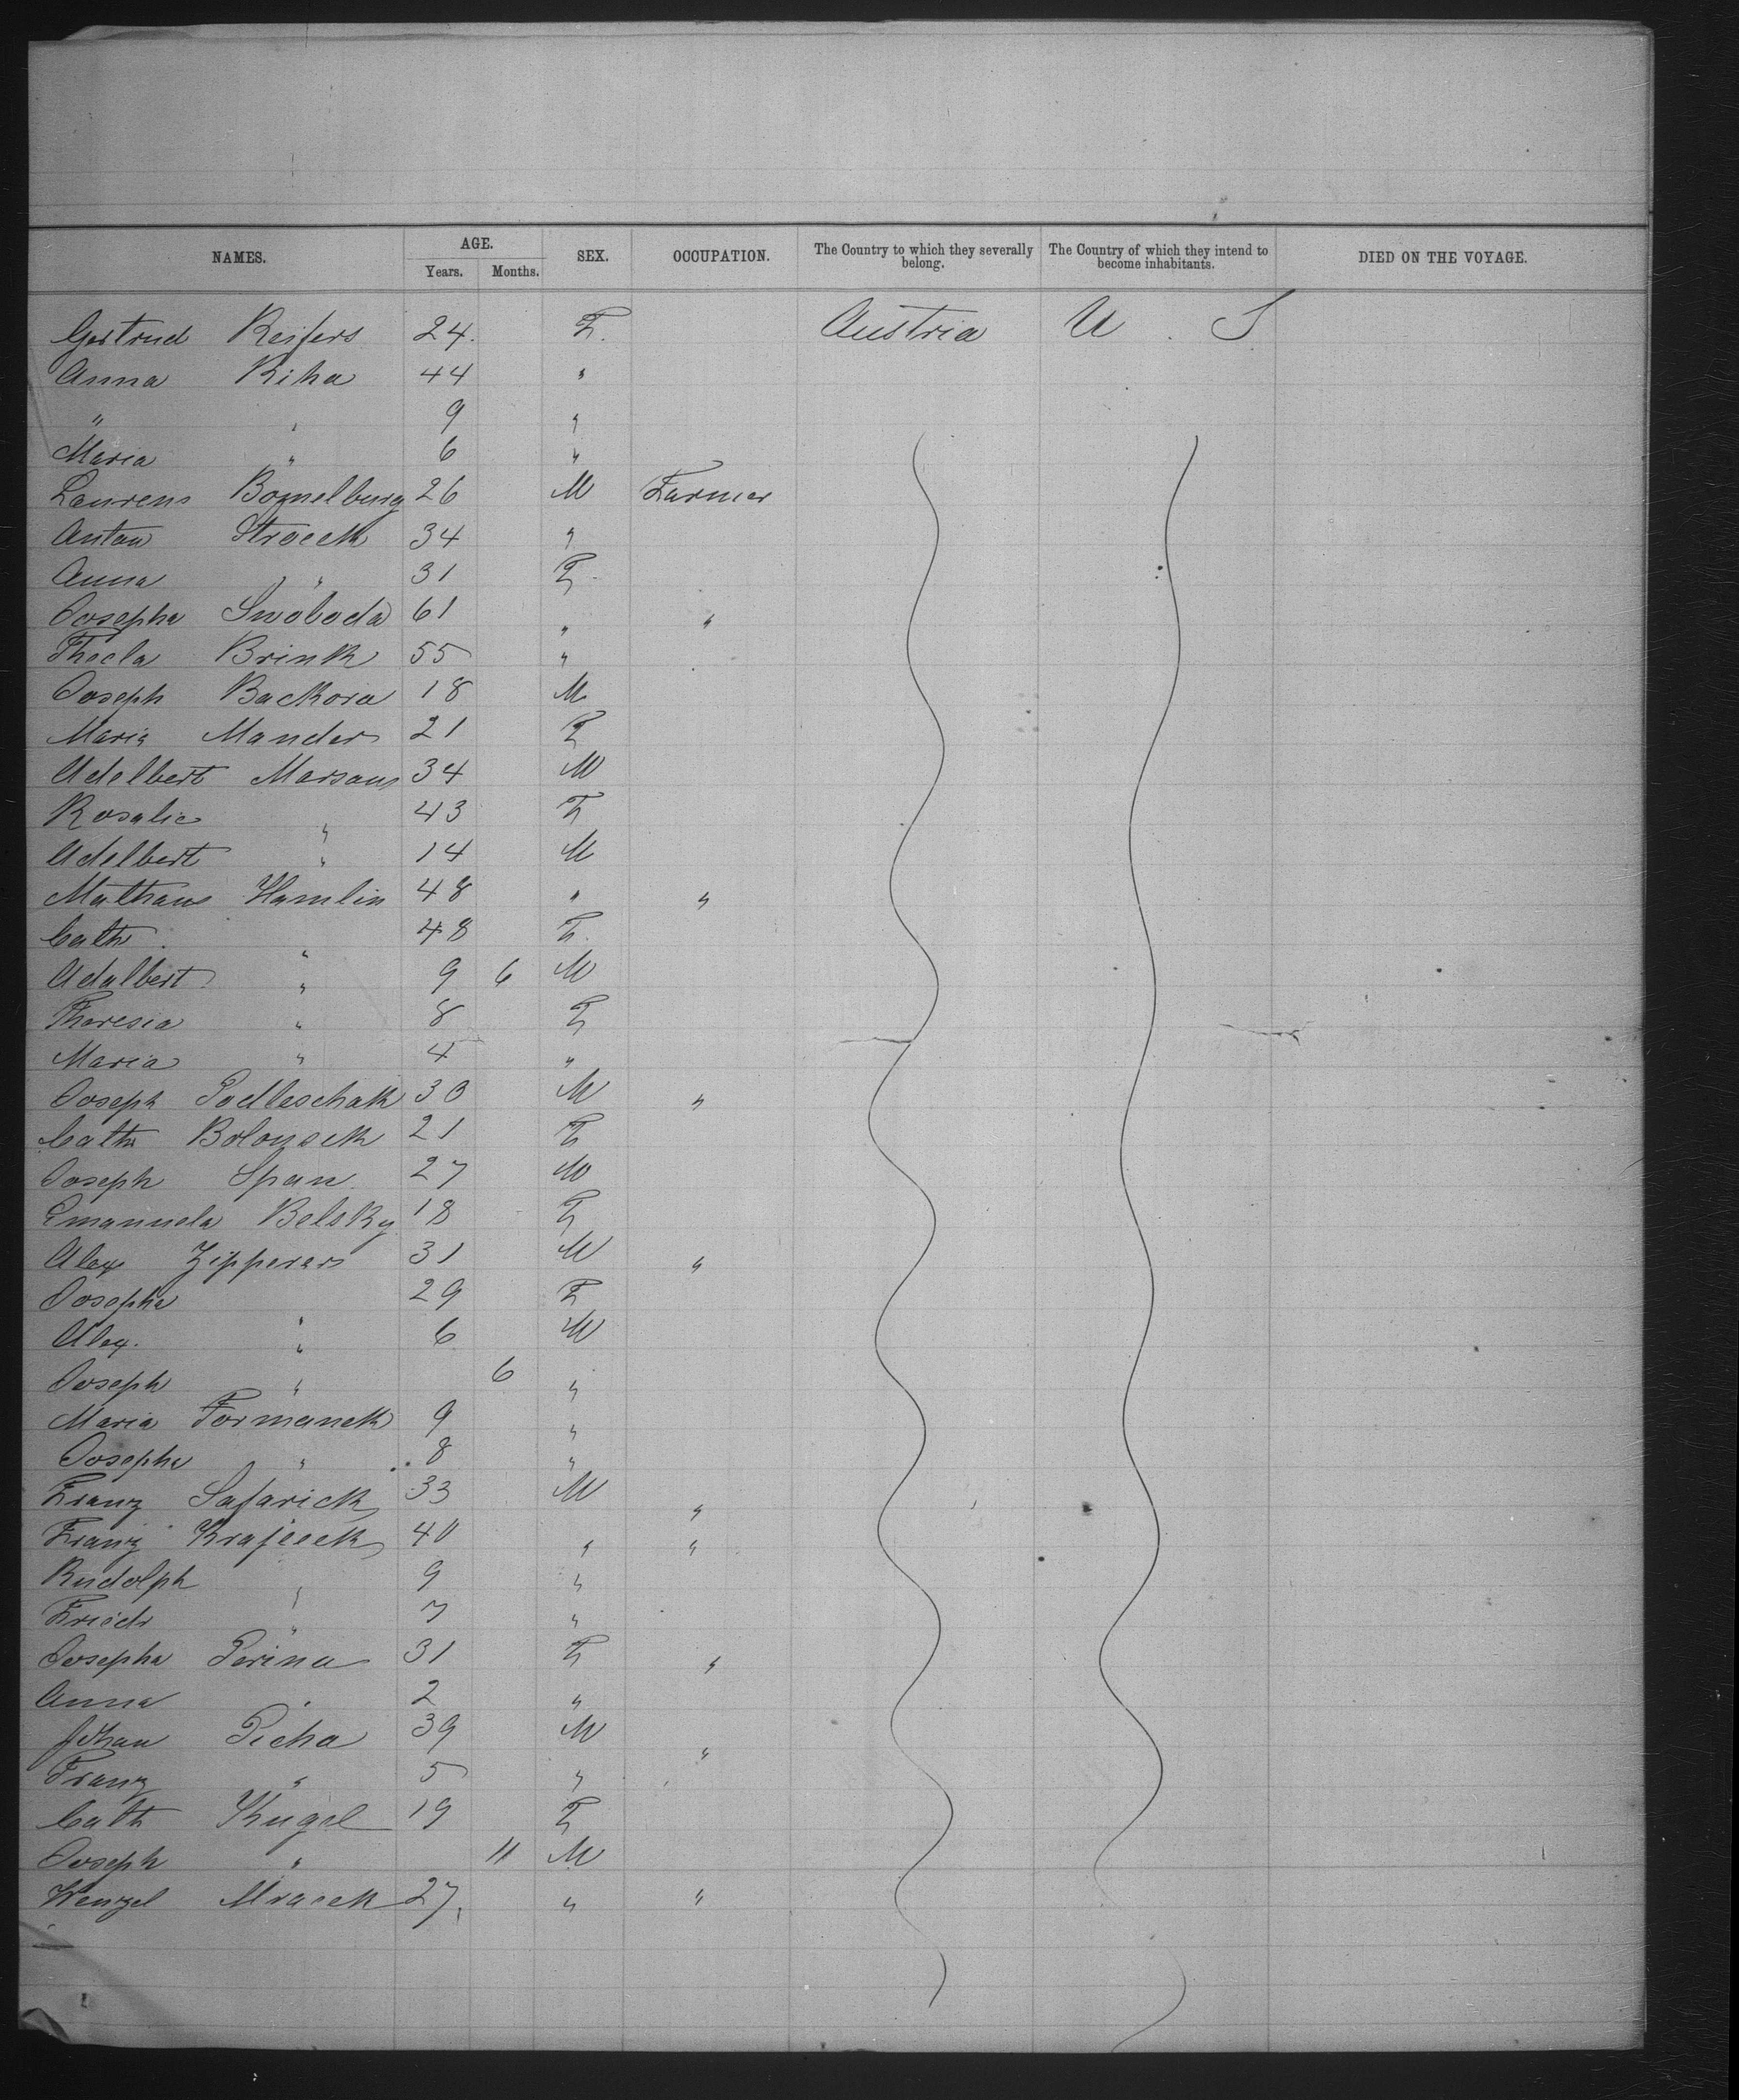 NAMES. AGE. Years. Months. SEX. OCCUPATION. The Country to which they severally belong. The Country of which they intend to become inhabitants. DIED ON THE VOYAGE.
Gertrud Reifers 24. F. Austria U. S
Anna Riha 44 "
" " 9 "
Maria " 6 "
Laurens Bomelburg 26 M Farmer
Anton Stroeck 34 "
Anna " 31 F
Josepha Swoboda 61 " "
Thecla Brink 55 "
Joseph Backora 18 M
Maria Mander 21 F
Adelbert Marsaus 34 M
Rosalie " 43 F
Adelbert " 14 M
Mathaus Hamlin 48 " "
Cath. " 48 F.
Adalbert " 9 6 M
Theresia " 8 F
Maria " 4 "
Joseph Podleschak 30 M "
Cath Bolouseck 21 F
Joseph Span 27 M
Emanuela Belsky 18 F
Alex Zipperer 31 M "
Josepha " 29 F
Alex. " 6 M
Joseph " 6 "
Maria Formanek 9 "
Josepha " 8 "
Franz Safarick 33 M "
Franz Krajeeck 40 " "
Rudolph " 9 "
Friedr " 7 "
Josepha Perina 31 F "
Anna " 2 "
Johan Picha 39 M "
Franz " 5 "
Cath Kugel 19 F
Joseph " 11 M
Wenzel Mracek 27 " "